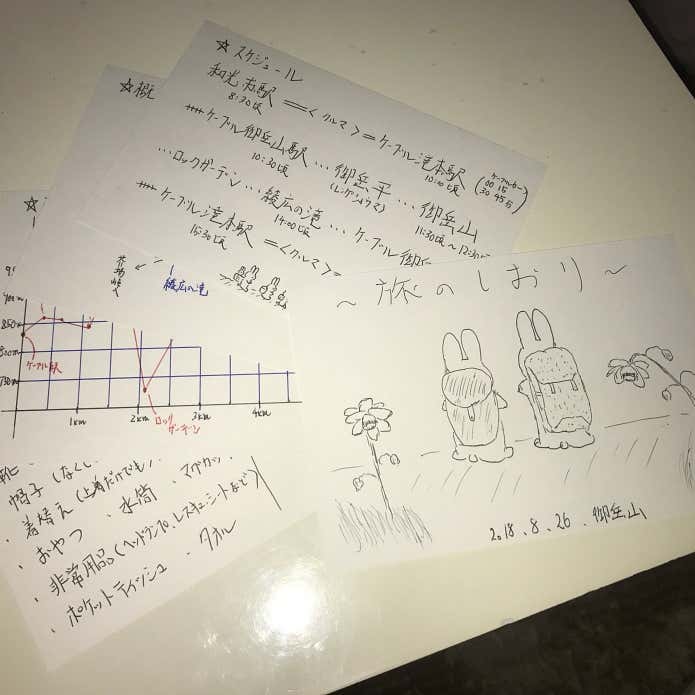 ☆ スケジュール
和光市駅 ＝＜クルマ＞＝ ケーブル滝本駅
8:30頃
10:10頃
ケーブルカー
00 15
30 45
ケーブル御岳山駅 … 御岳平 … 御岳山
10:30頃
(レンゲショウマ)
11:30頃〜12:30
…ロックガーデン … 綾広の滝 … ケーブル御
14:00頃
ケーブル滝本駅 ＝＜クルマ＞＝
15:30頃
☆概
☆
綾広の滝
850m
800m
750m
ケーブル駅
1km
2km
3km
4km
ロック
ガーデン
靴
帽子 しなくし
・着替え(上着だけでも)
・おやつ ・水筒 ・マグカップ
・非常用品(ヘッドランプ、レスキューシートなど)
・ポケットティッシュ ・タオル
〜旅のしおり〜
2018.8.26.御岳山